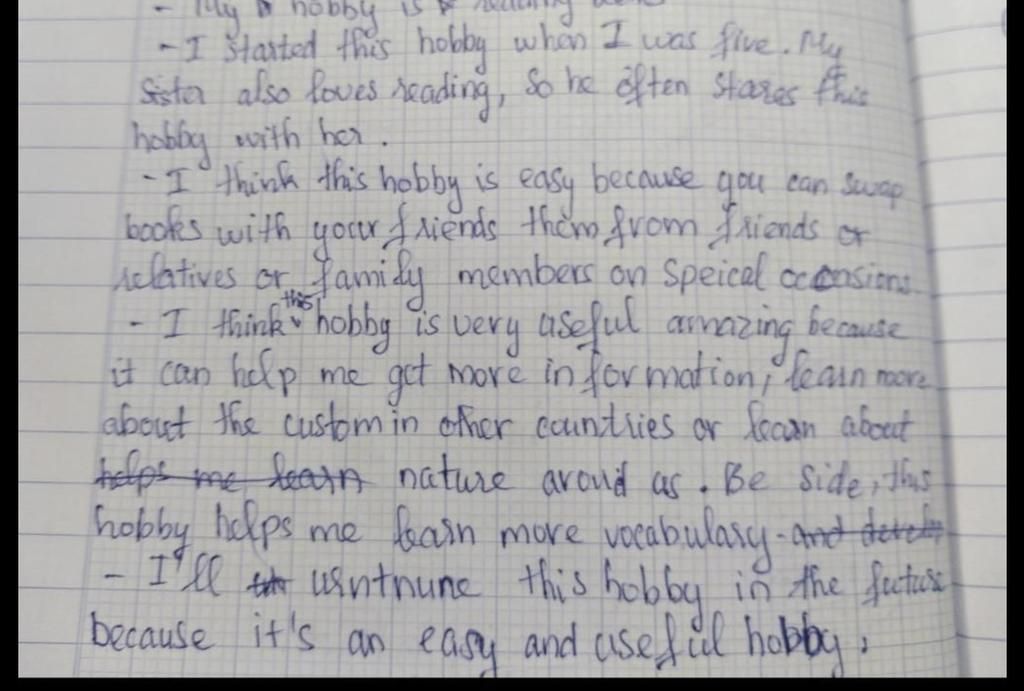 - My hobby is reading
- I started this hobby when I was five. My
sister also loves reading, so he often shares this
hobby with her.
- I think this hobby is easy because you can swap
books with your friends them from friends or
relatives or family members on speical occasions.
- I think this hobby is very useful amazing because
it can help me get more information, learn more
about the custom in other countries or learn about
helps me learn nature aroud us. Be side, this
hobby helps me learn more vocabulary. and
- I'll this hobby in the future
because it's an easy and useful hobby.